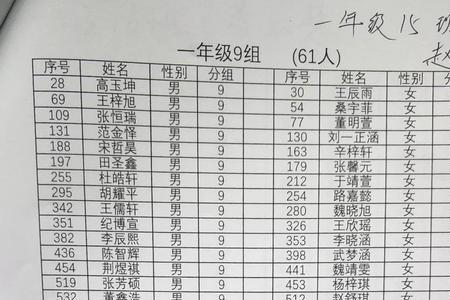 一年级15班
赵
一年级9组 (61人)
序号 姓名 性别 分组 序号 姓名 性别
28 高玉坤 男 9 30 王辰雨 女
69 王梓旭 男 9 54 桑宇菲 女
109 张恒瑞 男 9 77 董明萱 女
131 范金怿 男 9 130 刘一正涵 女
188 宋哲昊 男 9 163 辛梓轩 女
197 田圣鑫 男 9 179 张馨元 女
255 杜皓轩 男 9 212 于靖萱 女
295 胡耀平 男 9 254 路嘉懿 女
342 王儒轩 男 9 280 魏晓旭 女
351 纪博宣 男 9 326 王欣瑶 女
382 李辰熙 男 9 353 李晓涵 女
436 陈智辉 男 9 398 武梦涵 女
454 荆煜祺 男 9 441 魏靖雯 女
519 张芳硕 男 9 453 杨梓琪 女
532 董鑫浩 男 9 512 赵舒琪 女